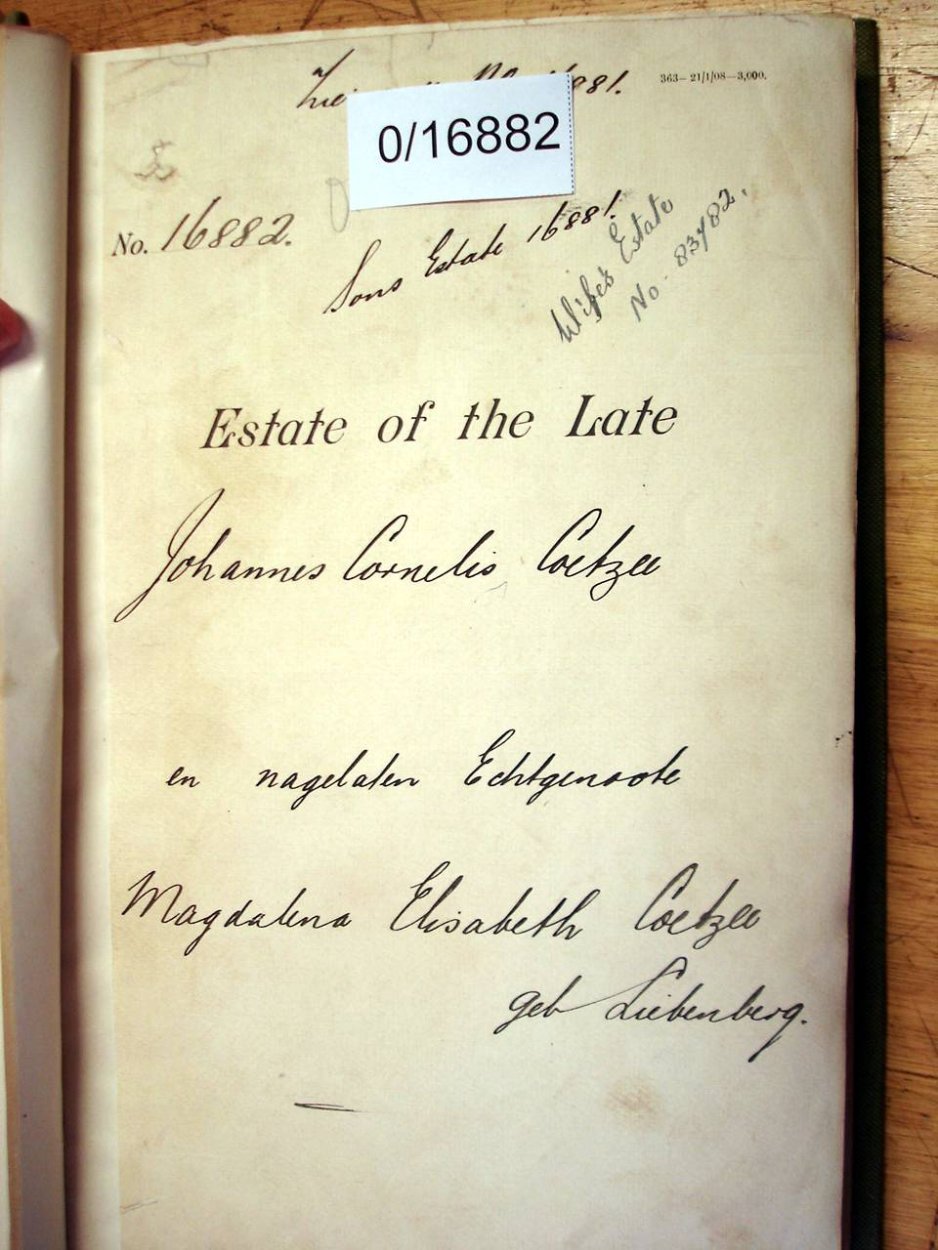 1881.
363—21/1/08—3,000.
0/16882
No. 16882.
Sons Estate 16881.
Wife's Estate
No. 83482.
Estate of the Late
Johannes Cornelis Coetzee
en nagelaten Echtgenoote
Magdalena Elisabeth Coetzee
geb Liebenberg.